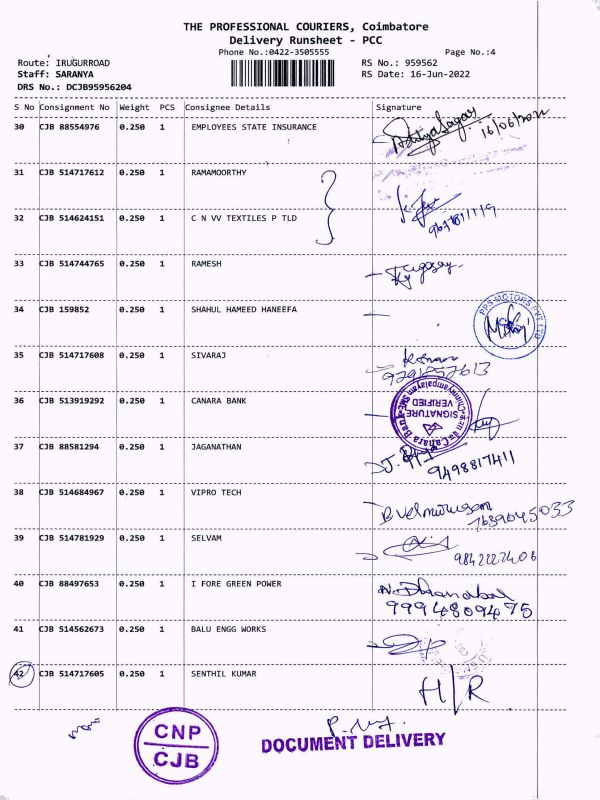 THE PROFESSIONAL COURIERS, Coimbatore
Delivery Runsheet - PCC
Phone No.:0422-3505555 Page No.:4
Route: IRUGURROAD RS No.: 959562
Staff: SARANYA RS Date: 16-Jun-2022
DRS No.: DCJB95956204
S No Consignment No Weight PCS Consignee Details Signature
30 CJB 88554976 0.250 1 EMPLOYEES STATE INSURANCE
31 CJB 514717612 0.250 1 RAMAMOORTHY
32 CJB 514624151 0.250 1 C N VV TEXTILES P TLD
33 CJB 514744765 0.250 1 RAMESH
34 CJB 159852 0.250 1 SHAHUL HAMEED HANEEFA
PPS MOTORS PVT LTD
35 CJB 514717608 0.250 1 SIVARAJ
36 CJB 513919292 0.250 1 CANARA BANK
SIGNATURE VERIFIED
37 CJB 88581294 0.250 1 JAGANATHAN
9498817411
38 CJB 514684967 0.250 1 VIPRO TECH
B Velmurugan
7639045033
39 CJB 514781929 0.250 1 SELVAM
9842222406
40 CJB 88497653 0.250 1 I FORE GREEN POWER N. Dhanabal
9994809475
41 CJB 514562673 0.250 1 BALU ENGG WORKS
42 CJB 514717605 0.250 1 SENTHIL KUMAR
H/R
CNP
CJB
DOCUMENT DELIVERY